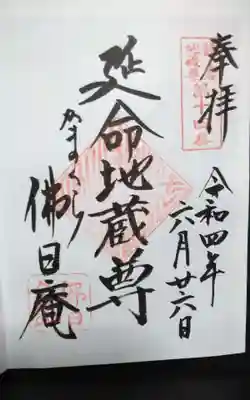 奉拝
令和四年
六月廿六日
延命地蔵尊
かまくら
佛日庵